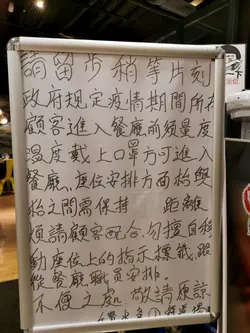 請留步稍等片刻
政府規定疫情期間所有
顧客進入餐廳前須量度
溫度戴上口罩方可進入
餐廳,座位安排方面枱與
枱之間需保持 距離
煩請顧客配合,勿擅自移
動座位上的指示標籤,跟
從餐廳職員安排。
不便之處 敬請原諒